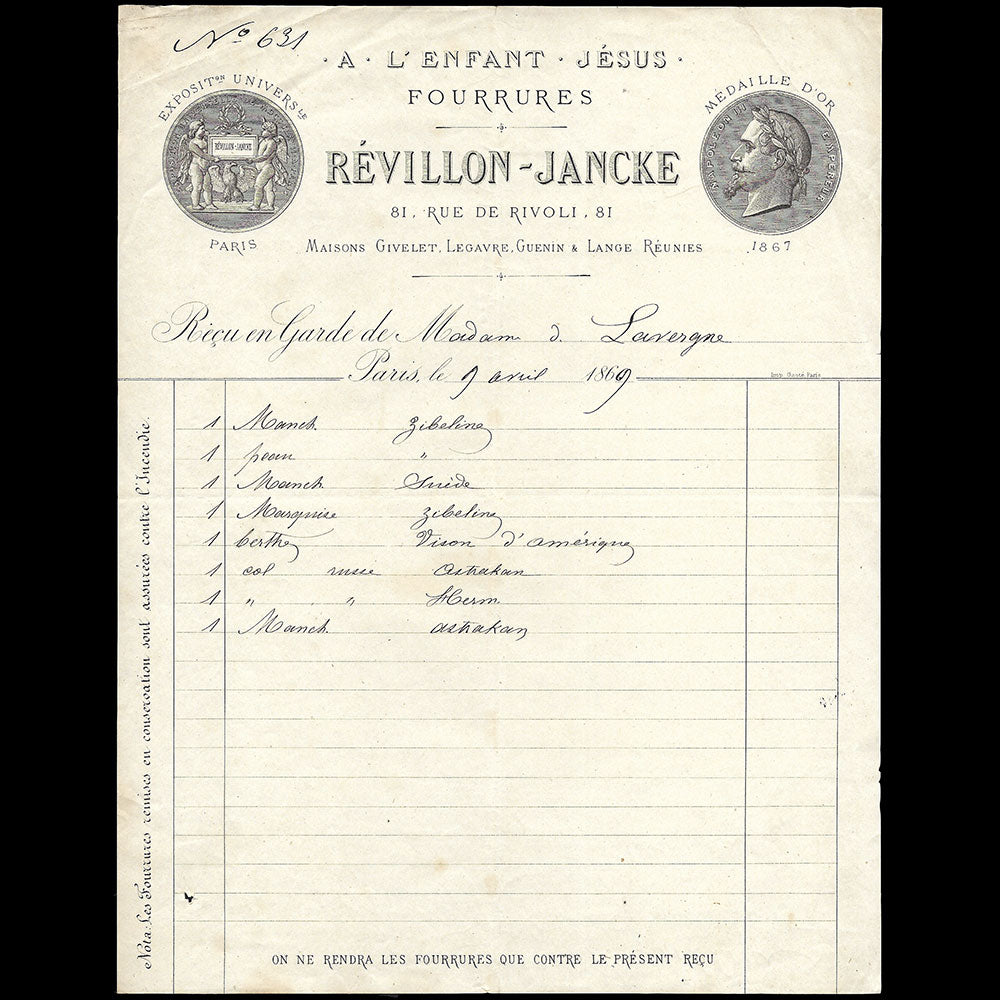 No 631
· A · L'ENFANT · JÉSUS ·
FOURRURES
RÉVILLON-JANCKE
81, RUE DE RIVOLI, 81
MAISONS GIVELET, LEGAVRE, GUENIN & LANGE RÉUNIES
EXPOSIT.ON UNIVERS.LE
RÉVILLON-JANCKE
PARIS
MÉDAILLE D'OR
NAPOLEON III EMPEREUR
1867
Reçu en Garde de Madam d. Lavergne
Paris, le 9 avril 1869
Imp. Paris
1 Manch. Zibeline
1 peau "
1 Manch. Suède
1 Marquise Zibeline
1 berthe Vison d'amérique
1 col russe astrakan
1 " " Herm.
1 Manch. astrakan
Nota: Les Fourrures remises en conservation sont assurées contre l'Incendie.
ON NE RENDRA LES FOURRURES QUE CONTRE LE PRÉSENT REÇU